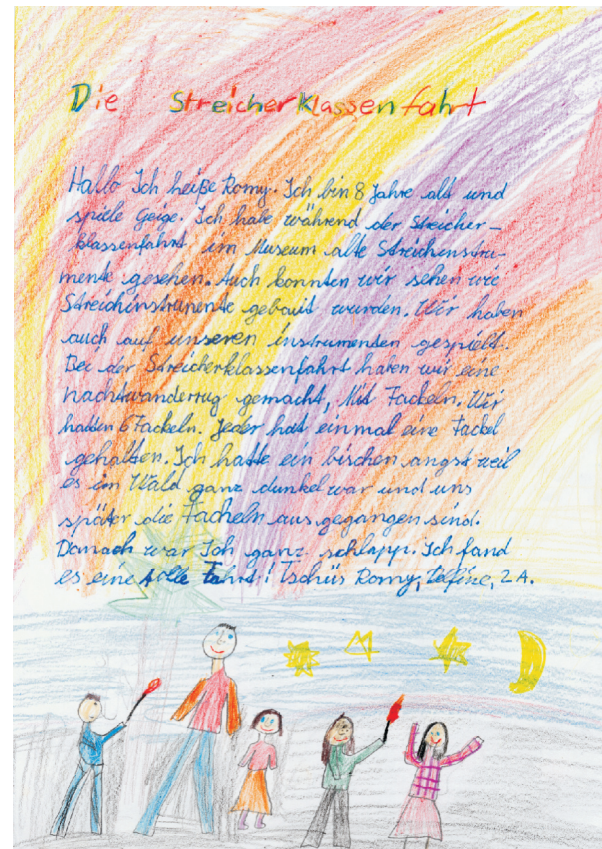 Die Streicherklassenfahrt
Hallo Ich heiße Romy. Ich bin 8 Jahre alt und
spiele Geige. Ich habe während der Streicher-
klassenfahrt im Museum alte Streichinstru-
mente gesehen. Auch konnten wir sehen wie
Streichinstrumente gebaut wurden. Wir haben
auch auf unseren instrumenten gespielt.
Bei der Streicherklassenfahrt haben wir eine
nachtwanderug gemacht, Mit Fackeln. Wir
hatten 6 Fackeln. Jeder hat einmal eine Fackel
gehalten. Ich hatte ein bischen angst weil
es im Wald ganz dunkel war und uns
später die Fackeln aus gegangen sind.
Danach war Ich ganz schlapp. Ich fand
es eine tolle Fahrt! Tschüs Romy, 2A.